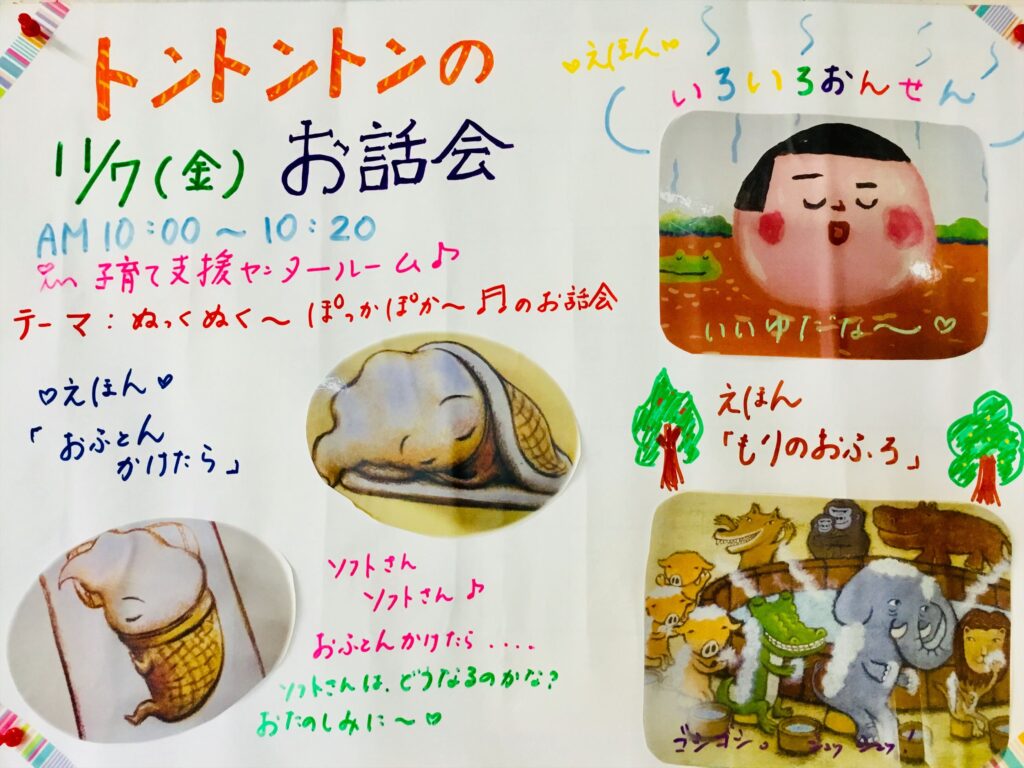 トントントンの
お話会
11/7(金)
AM10:00〜10:20
in 子育て支援センタールーム♪
テーマ:ぬっくぬく〜ぽっかぽか〜♬のお話会
♡えほん♡
「おふとん
かけたら」
ソフトさん
ソフトさん♪
おふとんかけたら....
ソフトさんは、どうなるのかな?
おたのしみに〜♡
♡えほん♡
いろいろおんせん
いいゆだな〜♡
えほん
「もりのおふろ」
ゴシゴシ。シュッシュッ!